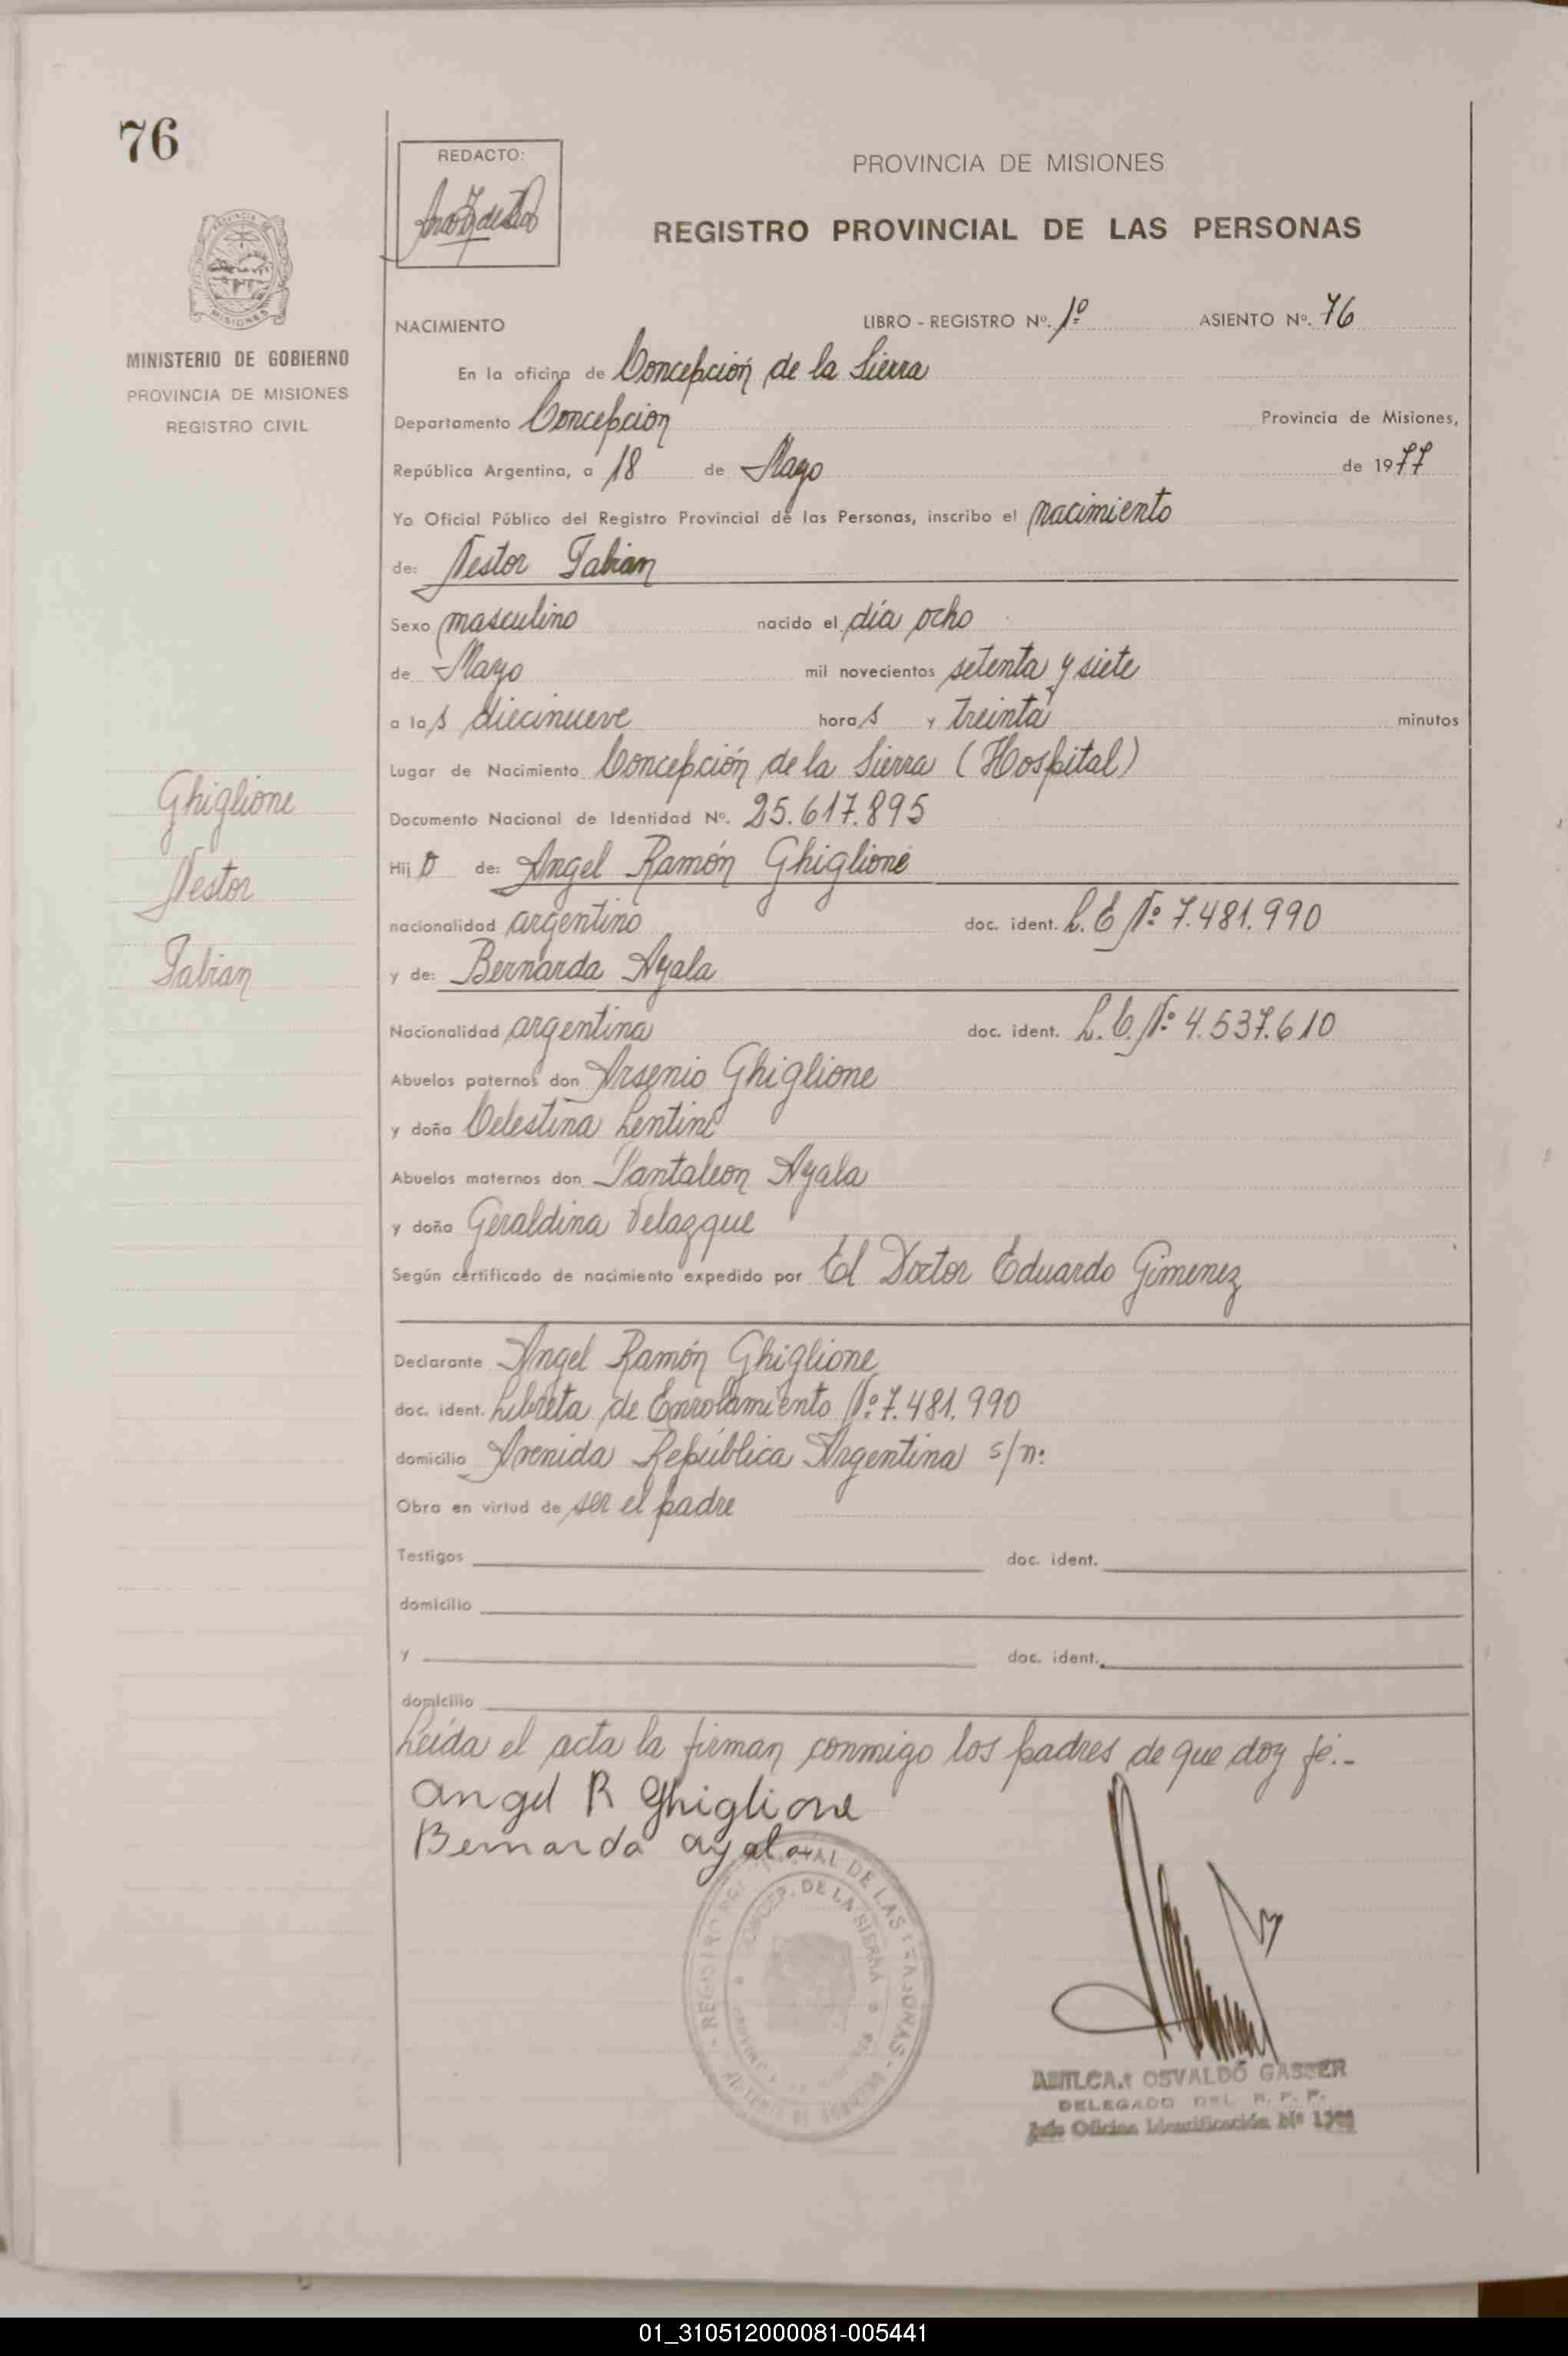 76
REDACTO:
PROVINCIA DE MISIONES
REGISTRO PROVINCIAL DE LAS PERSONAS
MINISTERIO DE GOBIERNO
PROVINCIA DE MISIONES
REGISTRO CIVIL
NACIMIENTO LIBRO - REGISTRO Nº. 1º ASIENTO Nº. 76
En la oficina de Concepción de la Sierra
Departamento Concepcion Provincia de Misiones,
República Argentina, a 18 de Mayo de 1977
Yo Oficial Público del Registro Provincial de las Personas, inscribo el nacimiento
de: Nestor Fabian
Sexo masculino nacido el día ocho
de Mayo mil novecientos setenta y siete
a las diecinueve horas y treinta minutos
Lugar de Nacimiento Concepción de la Sierra (Hospital)
Documento Nacional de Identidad Nº. 25.617.895
Hijo de: Angel Ramón Ghiglione
nacionalidad argentino doc. ident. L.E Nº 7.481.990
y de: Bernarda Ayala
Nacionalidad argentina doc. ident. L.C. Nº 4.537.610
Abuelos paternos don Arsenio Ghiglione
y doña Celestina Lentini
Abuelos maternos don Pantaleon Ayala
y doña Geraldina Velazque
Según certificado de nacimiento expedido por El Doctor Eduardo Gimenez
Ghiglione
Nestor
Fabian
Declarante Angel Ramón Ghiglione
doc. ident. Libreta de Enrolamiento Nº 7.481.990
domicilio Avenida República Argentina s/n:
Obra en virtud de ser el padre
Testigos doc. ident.
domicilio
y doc. ident.
domicilio
Leida el acta la firman conmigo los padres de que doy fé.-
Angel R Ghiglione
Bernarda ayala
CONCEP. DE LA SIERRA
AMILCAR OSVALDO GASSER
DELEGADO DEL R. P. P.
Jefe Oficina Identificación Nº
01_310512000081-005441